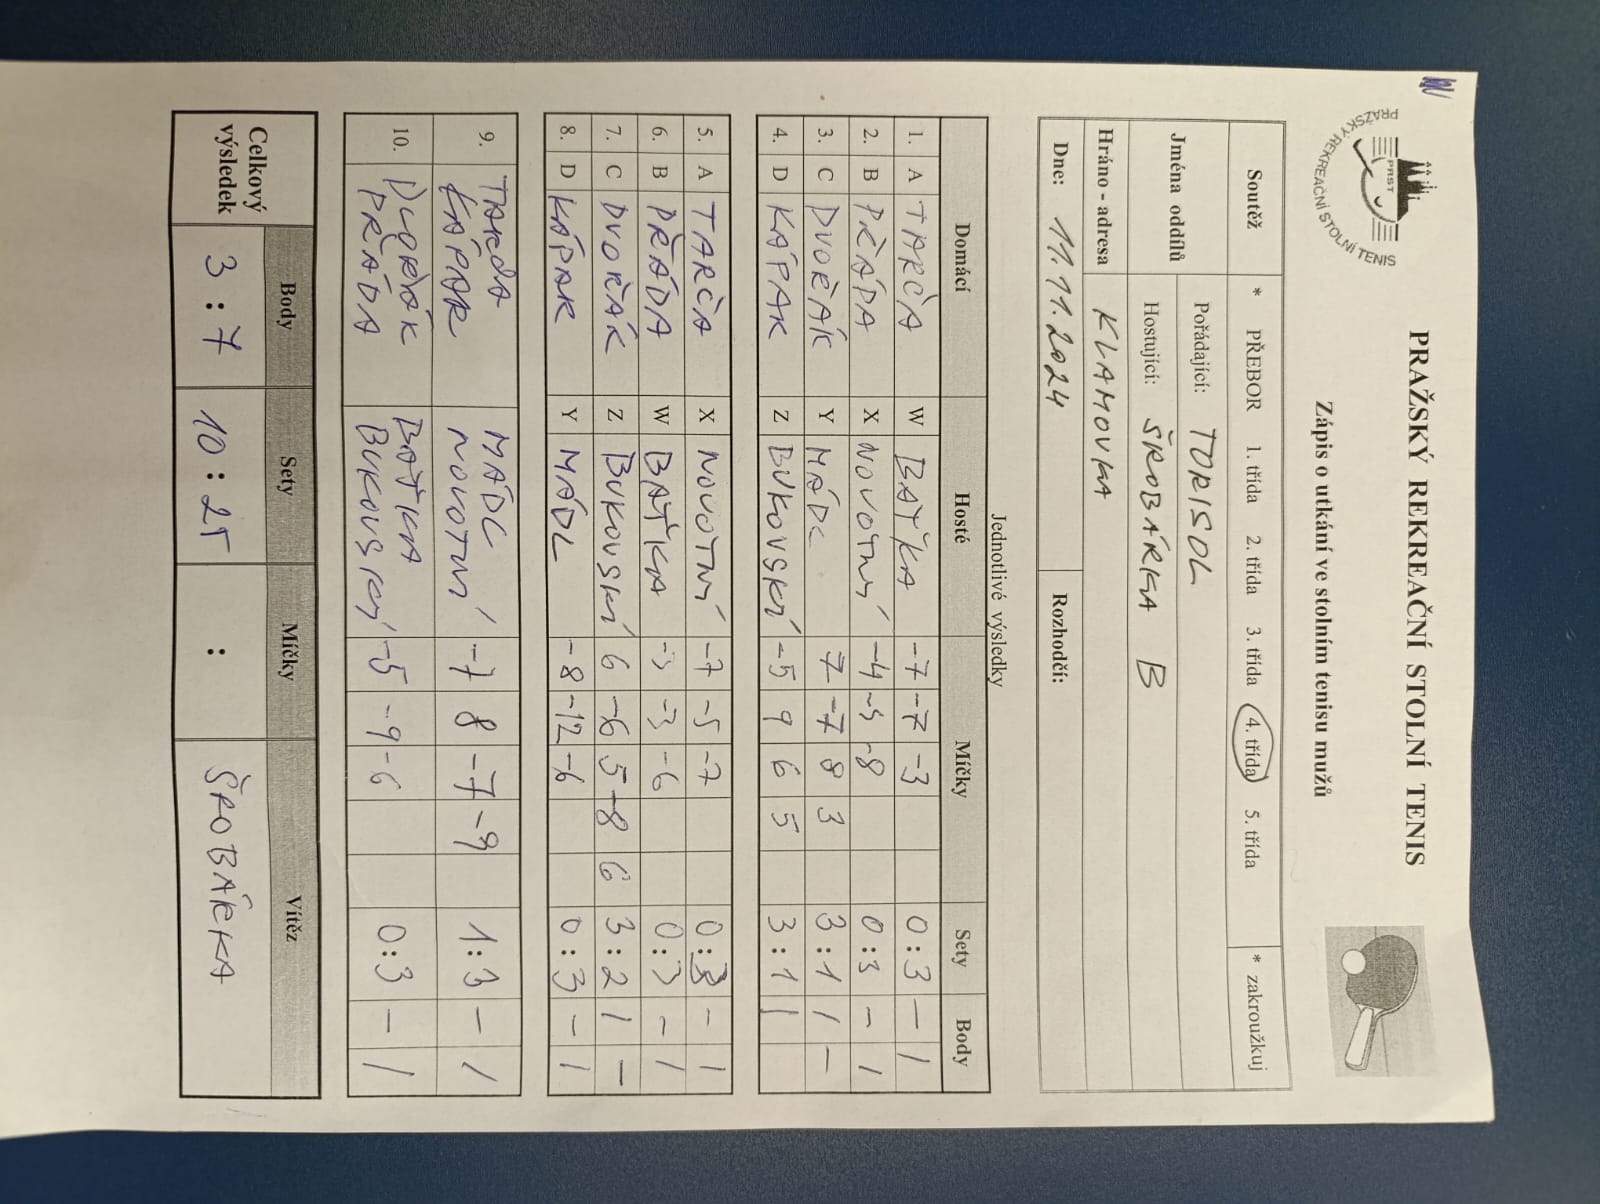 PRAŽSKÝ REKREAČNÍ STOLNÍ TENIS
Zápis o utkání ve stolním tenisu mužů
PRAŽSKÝ REKREAČNÍ STOLNÍ TENIS
PRST
Soutěž * PŘEBOR 1. třída 2. třída 3. třída 4. třída 5. třída * zakroužkuj
Jména oddílů Pořádající: TORISOL
Hostující: ŠROBÁRKA B
Hráno - adresa KLAMOVKA
Dne: 11.11.2024 Rozhodčí:
Jednotlivé výsledky
Domácí Hosté Míčky Sety Body
1. A TARČA W BAŤKA -7 -7 -3 0:3 - 1
2. B PŘÁDA X NOVOTNÝ -4 -3 -8 0:3 - 1
3. C DVOŘÁK Y MÁDL 7 -7 8 3 3:1 1 -
4. D KÁPAR Z BUKOVSKÝ -5 9 6 5 3:1 1
5. A TARČA X NOVOTNÝ -7 -5 -7 0:3 - 1
6. B PŘÁDA W BAŤKA -3 -3 -6 0:3 - 1
7. C DVOŘÁK Z BUKOVSKÝ 6 -6 5 -8 6 3:2 1 -
8. D KÁPAR Y MÁDL -8 -12 -6 0:3 - 1
9. TARČA MÁDL -7 8 -7 -9 1:3 - 1
KÁPAR NOVOTNÝ
10. DVOŘÁK BAŤKA -5 -9 -6 0:3 - 1
PŘÁDA BUKOVSKÝ
Celkový výsledek Body Sety Míčky Vítěz
3:7 10:25 : ŠROBÁRKA